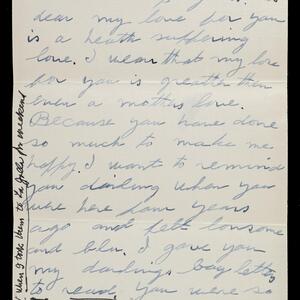 dear my love for you
is a heath suffering
love. I wean that my love
for you is greatter then
even a mothers love.
Because you have done
so much to make me
happy. I want to remind
you darling when you
whe here four years
ago and felt lonsome
and blu. I gave you
my darlings boy letters
to read, you were so
when I took them to